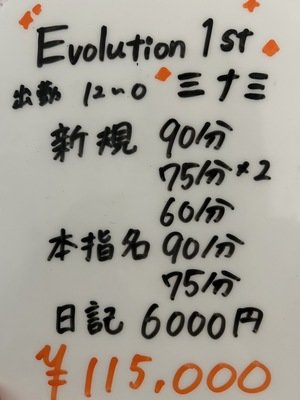 Evolution 1st
出勤 12〜0 三十三
新規 90分
75分×2
60分
本指名 90分
75分
日記 6000円
¥115.000